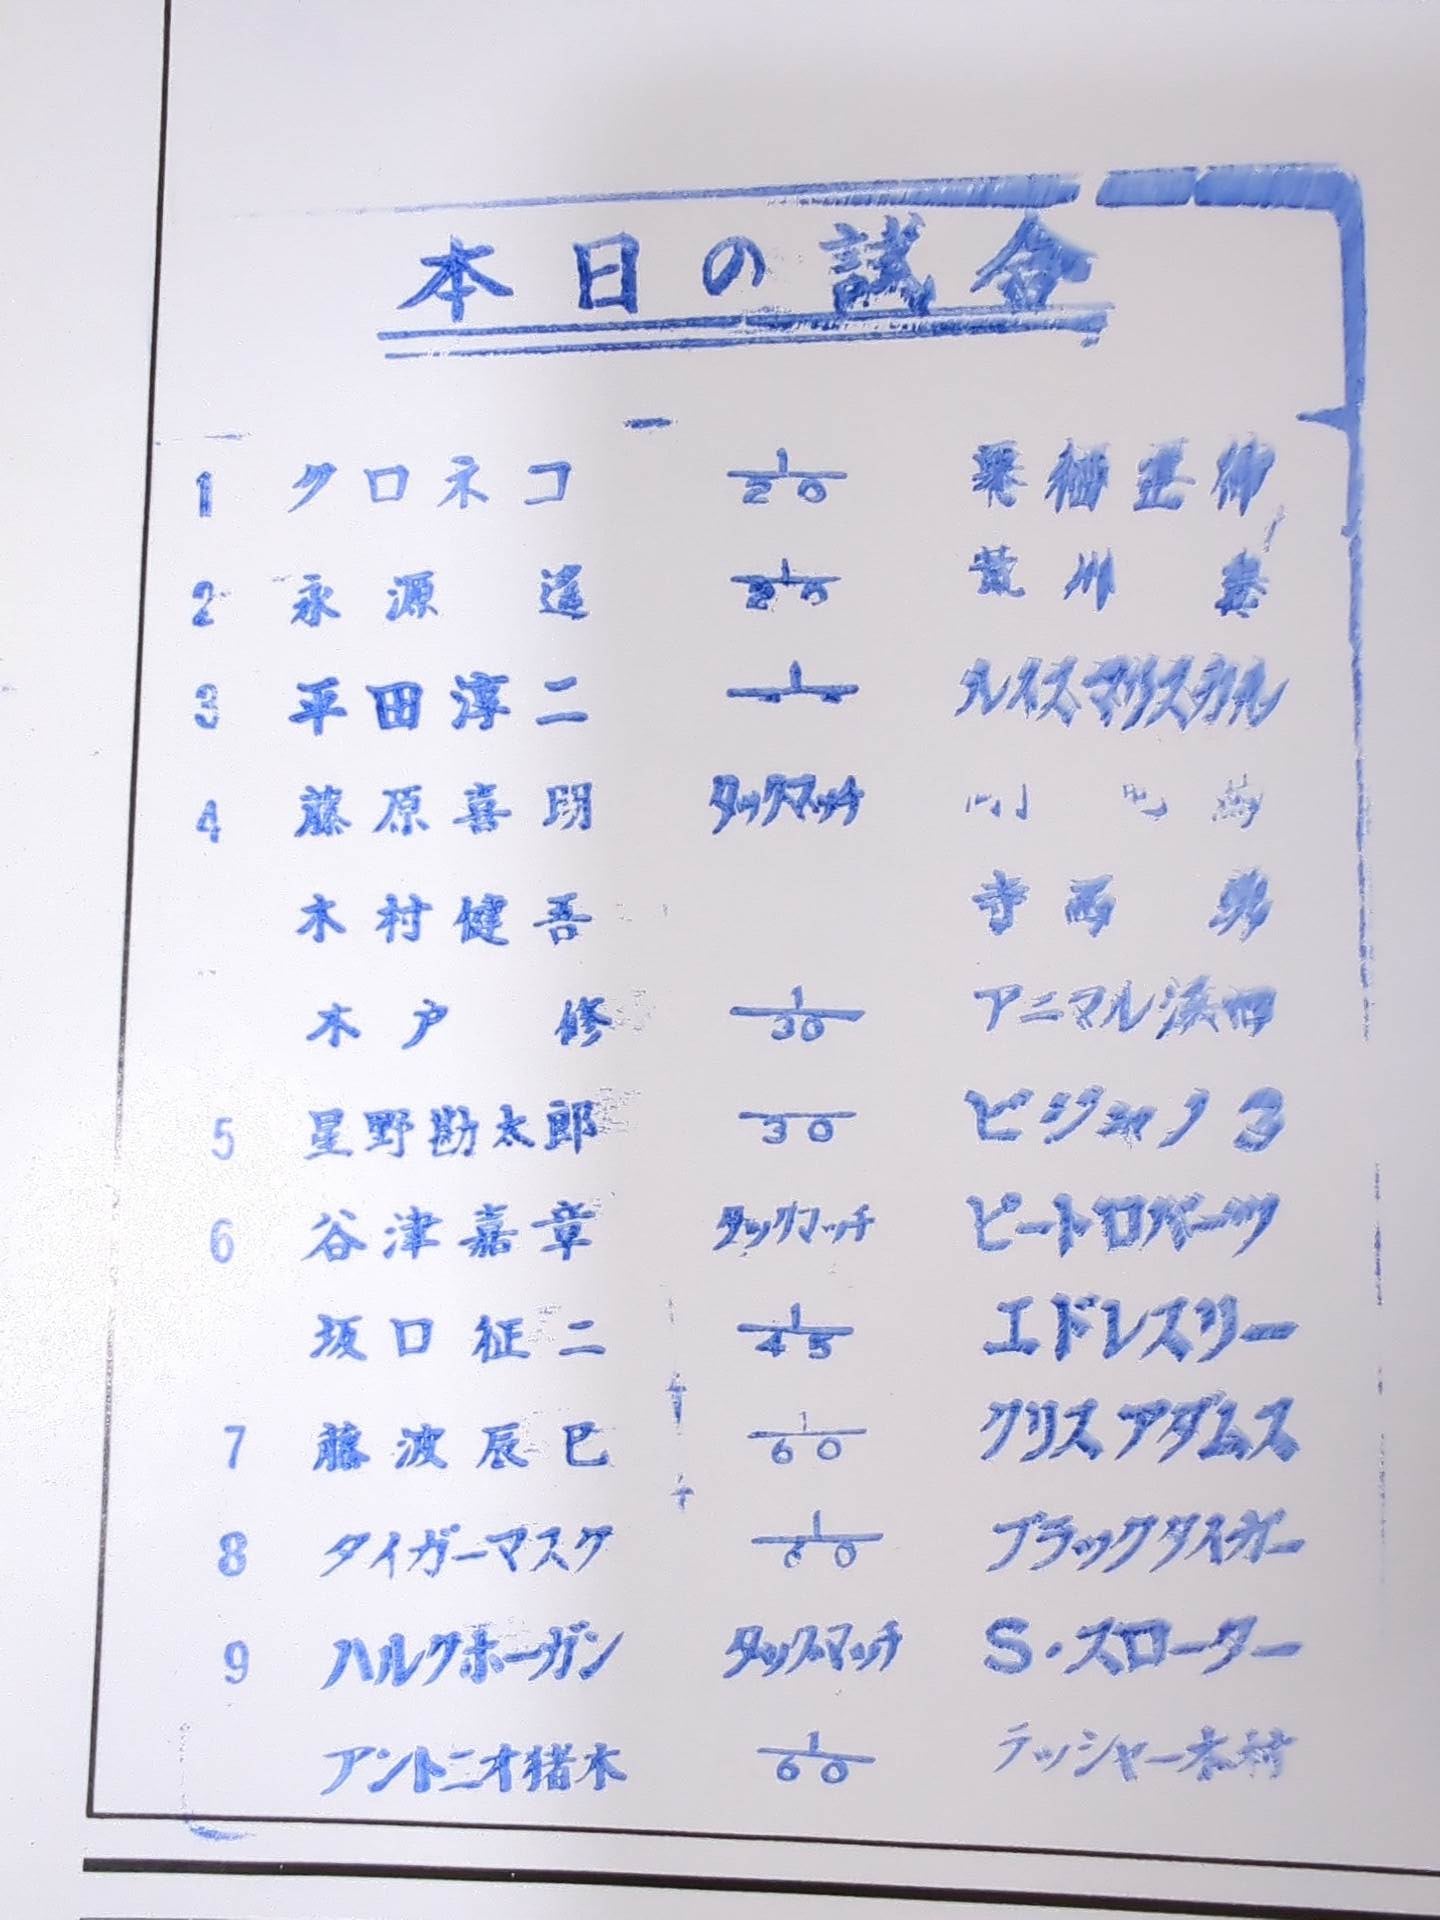 本日の試合
1 クロネコ 1/20 栗栖正伸
2 永源遥 1/20 荒川真
3 平田淳二 1 ルイスマリスカル
4 藤原喜明 タッグマッチ
木村健吾 寺西勇
木戸修 1/30 アニマル浜口
5 星野勘太郎 30 ビジャノ3
6 谷津嘉章 タッグマッチ ピートロバーツ
坂口征二 1/45 エドレスリー
7 藤波辰巳 1/60 クリスアダムス
8 タイガーマスク 1/60 ブラックタイガー
9 ハルクホーガン タッグマッチ S・スローター
アントニオ猪木 1/60 ラッシャー木村